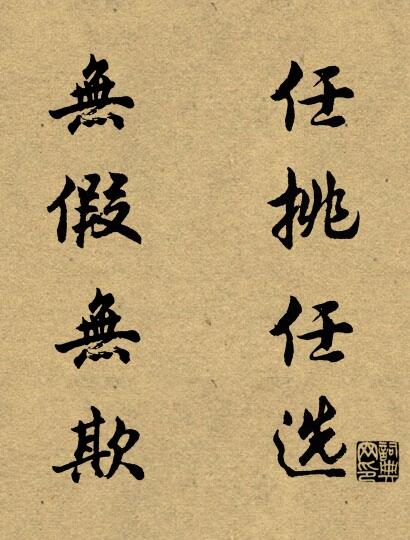 任挑任选
無假無欺
詞典網印